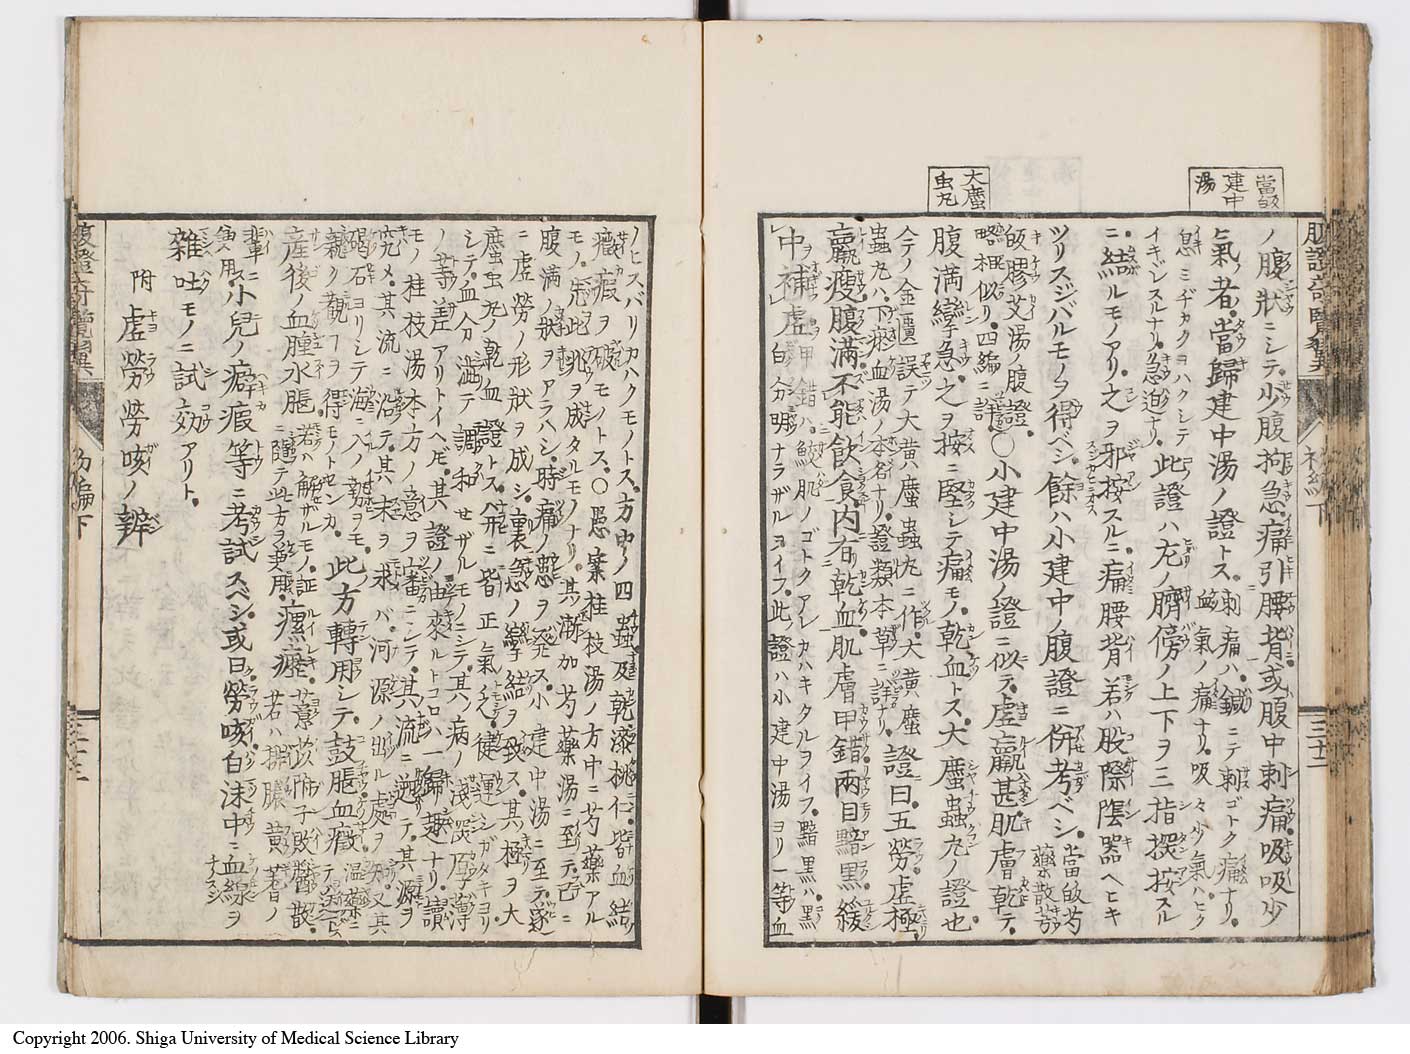 當皈
建中
湯
ノ腹狀ニシテ少腹拘急痛引腰背或腹中刺痛吸吸少
氣者當歸建中湯ノ證トス刺痛ハ鍼ニテ刺ゴトク痛ナリ
氣ノ痛ナリ吸々少氣ハヒク
息ミヂカクヨハクシテ
イキギレスルナリ急迫ナリ此證ハ左ノ臍傍ノ上下ヲ三指探按スル
ニ結ルモノアリ之ヲ邪按スルニ痛腰背若ハ股際陰器ヘヒキ
ツリスジバルモノヲ得ベシ餘ハ小建中ノ腹證ニ併考ベシ當皈芍
藥散芎
皈膠艾湯ノ腹證
略相似リ四編ニ詳
○小建中湯ノ證ニ似テ虛羸甚肌膚乾テ
大䗪
虫丸
腹滿攣急之ヲ按ニ堅シテ痛モノ乾血トス大䗪蟲丸ノ證也
今ノ金匱誤テ大黃䗪蟲丸ニ作大黃䗪
蟲丸ハ下瘀血湯ノ本名ナリ證類本草ニ詳ナリ
證曰五勞虛極
羸瘦腹滿不能飲食內有乾血肌膚甲錯兩目黯黑緩
中補虛甲錯ハ鮫肌ノゴトクアレカハキタルヲイフ黯黑ハ黑
白分明ナラザルヲイフ此ノ證ハ小建中湯ヨリ一等血
ノヒスバリカハクモノトス方中ノ四蟲及乾漆桃仁皆血結
癥瘕ヲ破モノトス○愚案桂枝湯ノ方中ニ芍藥アル
モノ先此兆ヲ成タルモノナリ其漸加芍藥湯ニ至テ已ニ
腹滿ノ狀ヲアラハシ時痛ノ患ヲ發ス小建中湯ニ至テ遂
ニ虛勞ノ形狀ヲ成シ裏急ノ攣結ヲ致ス其極ヲ大
䗪虫丸ノ乾血證トス并ニ皆正氣乏徒運シガタキヨリ
シテ血分濇テ調和セザルモノニシテ其ノ病ノ淺深厚薄
ノ等差アリトイヘドモ其證ノ由來ルトコロハ一歸趣ナリ讀
モノ桂枝湯本方ノ意ヲ審ニシテ其流ニ遡テ其源ヲ
究メ其流ニ沿テ其末ヲ求バ河源ノ出ル處ヲ知又其
碣石ヨリシテ海ニ入ノ勢ヲモ
親リノ觀フヲ得モノトセンカ
此方轉用シテ鼓脹血癥
產後ノ血腫水脹若ハ解ザルモノ證
ニ隨テ此方ヲ兼用
瘰癧
輩ニ小兒ノ癖瘕等ニ考試スベシ或曰勞咳白沫中ニ血線ヲ
雜吐モノニ試効アリト
附虛勞勞咳ノ辨